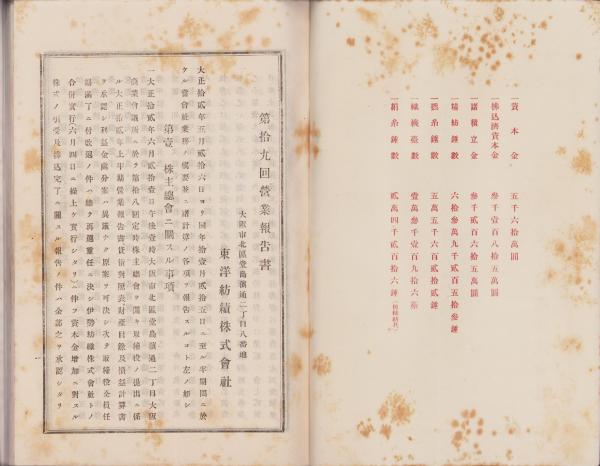 一資本金 五千六拾萬圓
一拂込濟資本金 參千壹百八拾五萬圓
一諸積立金 參千貳百六拾五萬圓
一精紡錘數 六拾參萬九千貳百五拾參錘
一撚糸錘數 五萬五千六百貳拾貳錘
一織機臺數 壹萬參千九百拾六臺
一絹糸錘數 貳萬四千貳百拾六錘
第拾九回營業報告書
大阪市北區堂島濱通二丁目八番地
東洋紡績株式會社
大正拾貳年五月貳拾六日ヨリ同年拾壹月貳拾五日ニ至ル半期間ニ於
ケル當會社業務ノ概要並ニ諸計算ノ各項ヲ報告スルコト左ノ如シ
第壹 株主總會ニ關スル事項
一大正拾貳年六月貳拾壹日午後壹時大阪市北區堂島濱通二丁目大阪
商業會議所ニ於テ第拾八回定時株主總會ヲ開キ取締役ノ提出ニ係
ル大正拾貳年上半期營業報告書貸借對照表財產目錄及損益計算書
ヲ承認シ利益金處分案ハ異議ナク原案ヲ可決シ次テ取締役全員任
期滿了ニ付改選ノ件ハ總テ再選重任ニ決シ伊勢紡織株式會社トノ
合併實行(六月四日ニ繰上ケ實行シタリ)ノ件ヲ資本金增加ニ對スル
株式ノ引受及拂込完了ニ關スル報告ノ件ハ全部之ヲ承認シタリ